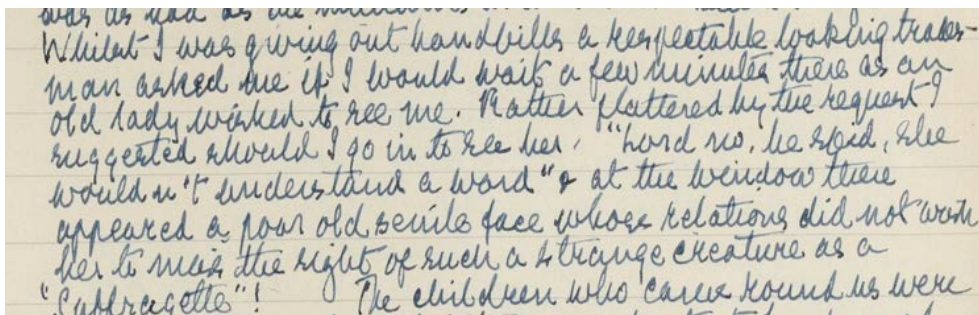 was as bad as the
Whilst I was giving out handbills a respectable looking trades-
man asked me if I would wait a few minutes there as an
old lady wished to see me. Rather flattered by the request I
suggested should I go in to see her, "Lord no, he said, she
wouldn't understand a word" & at the window there
appeared a poor old senile face whose relations did not wish
her to miss the sight of such a strange creature as a
"Suffragette"! The children who came round us were